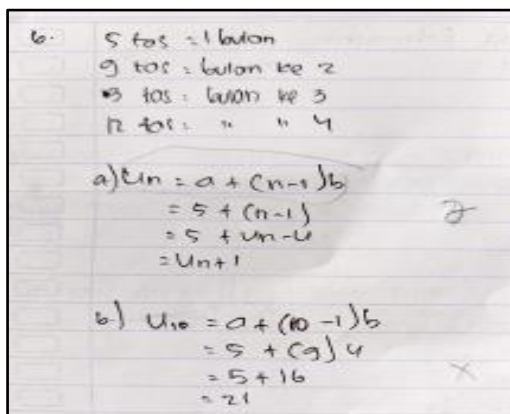 6. 5 tas = 1 bulan
9 tas = bulan ke 2
13 tas = bulan ke 3
17 tas = " " 4
a) Un = a + (n-1)b
= 5 + (n-1)
= 5 + 4n-4
= 4n+1
2
b) U10 = a + (10-1)b
= 5 + (9)4
= 5 + 16
= 21
x